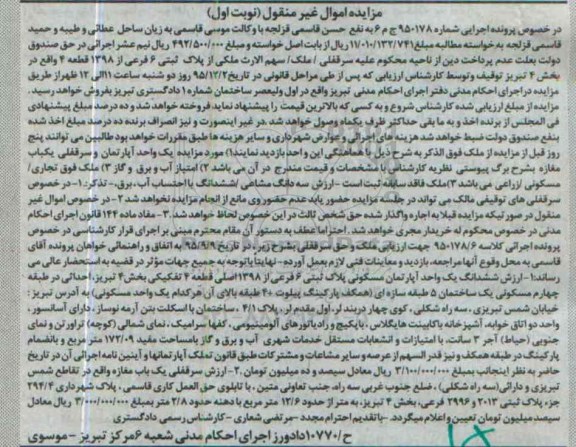 مزایده اموال غیر منقول (نوبت اول)
در خصوص پرونده اجرایی شماره ۹۵۰۱۷۸ ج م ۶ به نفع حسن قاسمی قزلجه با وکالت موسی قاسمی به زیان ساحل عطائی و طیبه و حمید
قاسمی قزلجه به خواسته مطالبه مبلغ ۱۱/۰۱۰/۱۳۲/۷۴۱ ریال از بابت اصل خواسته و مبلغ ۴۹۲/۵۰۰/۰۰۰ ریال نیم عشر اجرائی در حق صندوق
دولت بعلت عدم پرداخت دین از ناحیه محکوم علیه سرقفلی / ملک / سهم الارث ملکی از پلاک ثبتی ۶ فرعی از ۱۳۹۸ قطعه ۴ واقع در
بخش ۴ تبریز توقیف و توسط کارشناس ارزیابی که پس از طی مراحل قانونی در تاریخ ۹۵/۱۲/۲ روز دو شنبه ساعت ۱۱ الی ۱۲ ظهر از طریق
مزایده در اجرای احکام مدنی دفتر اجرای احکام مدنی تبریز واقع در اول ولیعصر ساختمان شماره ۱ دادگستری تبریز بفروش خواهد رسید.
مزایده از مبلغ ارزیابی شده کارشناس شروع و به کسی که بالاترین قیمت را پیشنهاد نماید فروخته خواهد شد و ده درصد مبلغ پیشنهادی
فی المجلس از برنده اخذ و به ما بقی حداکثر ظرف یکماه وصول خواهد شد. در غیر اینصورت و نیز انصراف برنده ده درصد مبلغ اخذ شده
بنفع صندوق دولت ضبط خواهد شد هزینه های اجرائی و عوارض شهرداری و سایر هزینه ها طبق مقررات خواهد بود طالبین می توانند پنج
روز قبل از مزایده از ملک فوق الذکر به شرح ذیل با هماهنگی این واحد بازدید نمایند. ۱) مورد مزایده یک واحد آپارتمان و سرقفلی یکباب
مغازه بشرح برگ پیوستی نظریه کارشناس با مشخصات و قیمت مندرج در آن می باشد ۲) امتیاز آب و برق و گاز ۳) ملک فوق تجاری/
مسکونی / زراعی می باشد ۳) ملک فاقد سابقه ثبت است - ارزش سه دانگ مشاعی / ششدانگ با احتساب آب، برق،- تذکر: ۱- در خصوص
سرقفلی های توقیفی مالک می تواند در جلسه مزایده حضور یابد عدم حضور وی مانع از انجام مزایده نخواهد شد ۲- در خصوص اموال غیر
منقول در صورتیکه مزایده قبلا به اجاره واگذار شده حق شخص ثالث در این خصوص لحاظ خواهد شد. ۳- مفاد ماده ۱۴۴ قانون اجرای احکام
مدنی در خصوص محکوم له خریدار مجری خواهد شد. احتراما عطف به دستور آن مقام محترم مبنی بر اجرای قرار کارشناسی در خصوص
پرونده اجرائی کلاسه ۹۵۰۱۷۸/۶ جهت ارزیابی ملک و حق سرقفلی بشرح زیر در تاریخ ۹۵/۹/۹ به اتفاق و راهنمائی خواهان پرونده آقای
قاسمی به محل وقوع آنها مراجعه، بازدید و معاینات فنی لازم بعمل آورده- نهایتا با توجه به جمیع جهات مؤثر در قضیه به استحضار عالی می
رساند: ۱- ارزش ششدانگ یک واحد آپارتمان مسکونی پلاک ثبتی ۶ فرعی از ۱۳۹۸ اصلی قطعه ۴ تفکیکی بخش ۴ تبریز، احداثی در طبقه
چهارم مسکونی یک ساختمان ۵ طبقه سازه ای (همکف پارکینگ پیلوت + ۴ طبقه بالای آن هر کدام یک واحد مسکونی) به آدرس تبریز:
خیابان شمس تبریزی، سه راه شکلی، کوی چهار در بند لر، اول مقدم لر، پلاک ۴/۱، ساختمان با اسکلت بتن آرمه نوساز، دارای آسانسور،
واحد دو اتاق خوابه، آشپزخانه با کابینت هایگلاس، با پکیج و رادیاتورهای آلومینیومی، کفها سرامیک، نمای شمالی (کوچه) تراورتن و نمای
جنوبی (حیاط) آجر ۳ سانت، با امتیازات و انشعابات مستقل خدمات شهری آب و برق و گاز بامساحت مفید ۱۷۲/۰۹ متر مربع و بانضمام
پارکینگ در طبقه همکف و نیز قدر السهم از عرصه و سایر مشاعات و مشترکات طبق قانون تملک آپارتمانها و آیین نامه اجرائی آن در تاریخ
حاضر به نظر اینجانب بمبلغ ۳/۱۰۰/۰۰۰/۰۰۰ ریال معادل سیصد و ده میلیون تومان. ۲- ارزش سرقفلی یک باب مغازه واقع در تقاطع شمس
تبریزی و دارائی (سه راه شکلی)، ضلع جنوب غربی سه راه، جنب تعاونی متین، با تابلوی حق العمل کاری قاسمی، پلاک شهرداری ۲۹۴/۴
جزء پلاک ثبتی ۲۰۱۳ و ۲۹۹۶ فرعی، بخش ۴ تبریز، به متر از حدود ۱۲/۶ متر مربع با دهنه حدود ۲/۸ متر بمبلغ ۳/۰۰۰/۰۰۰/۰۰۰ ریال معادل
سیصد میلیون تومان تعیین و اعلام میگردد - با تقدیم احترام مجدد - مرتضی شعاری - کارشناس رسمی دادگستری
ح/۱۰۷۷۰ دادورز اجرای احکام مدنی شعبه ۶ مرکز تبریز - موسوی